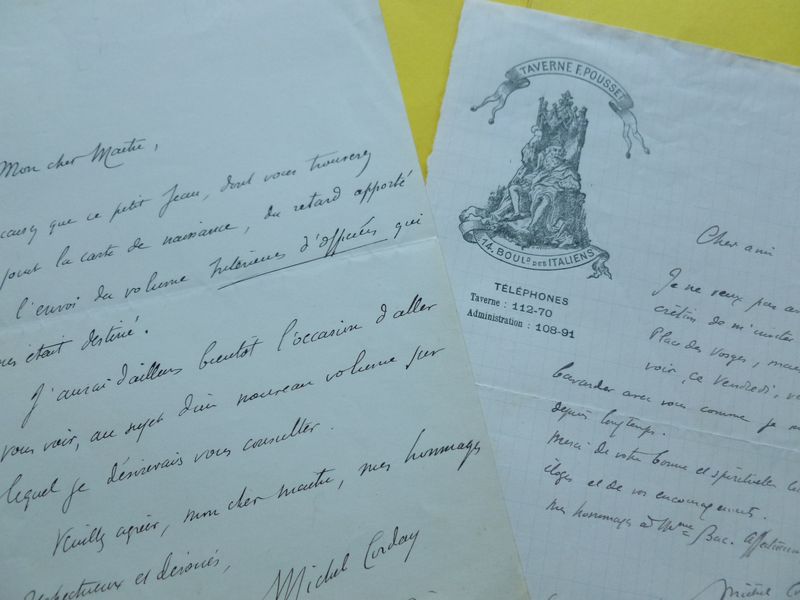 Mon cher Maître,
causez que ce petit Jean, dont vous trouverez
joint la carte de naissance, du retard apporté
l'envoi du volume Intérieurs d'officiers qui
vous était destiné.
J'aurai d'ailleurs bientôt l'occasion d'aller
vous voir, au sujet d'un nouveau volume sur
lequel je désirerais vous consulter.
Veuillez agréer, mon cher maître, mes hommages
respectueux et dévoués,
Michel Corday
TAVERNE F. POUSSET
14, BOUL.D DES ITALIENS
TÉLÉPHONES
Taverne : 112-70
Administration : 108-91
Cher ami
Je ne veux pas
crétin de m'inviter
Place des Vosges, mais
voir, ce Vendredi,
bavarder avec vous comme je
depuis longtemps.
Merci de votre bonne et spirituelle
éloges et de vos encouragements.
Mes hommages à Mme Bac.
Michel